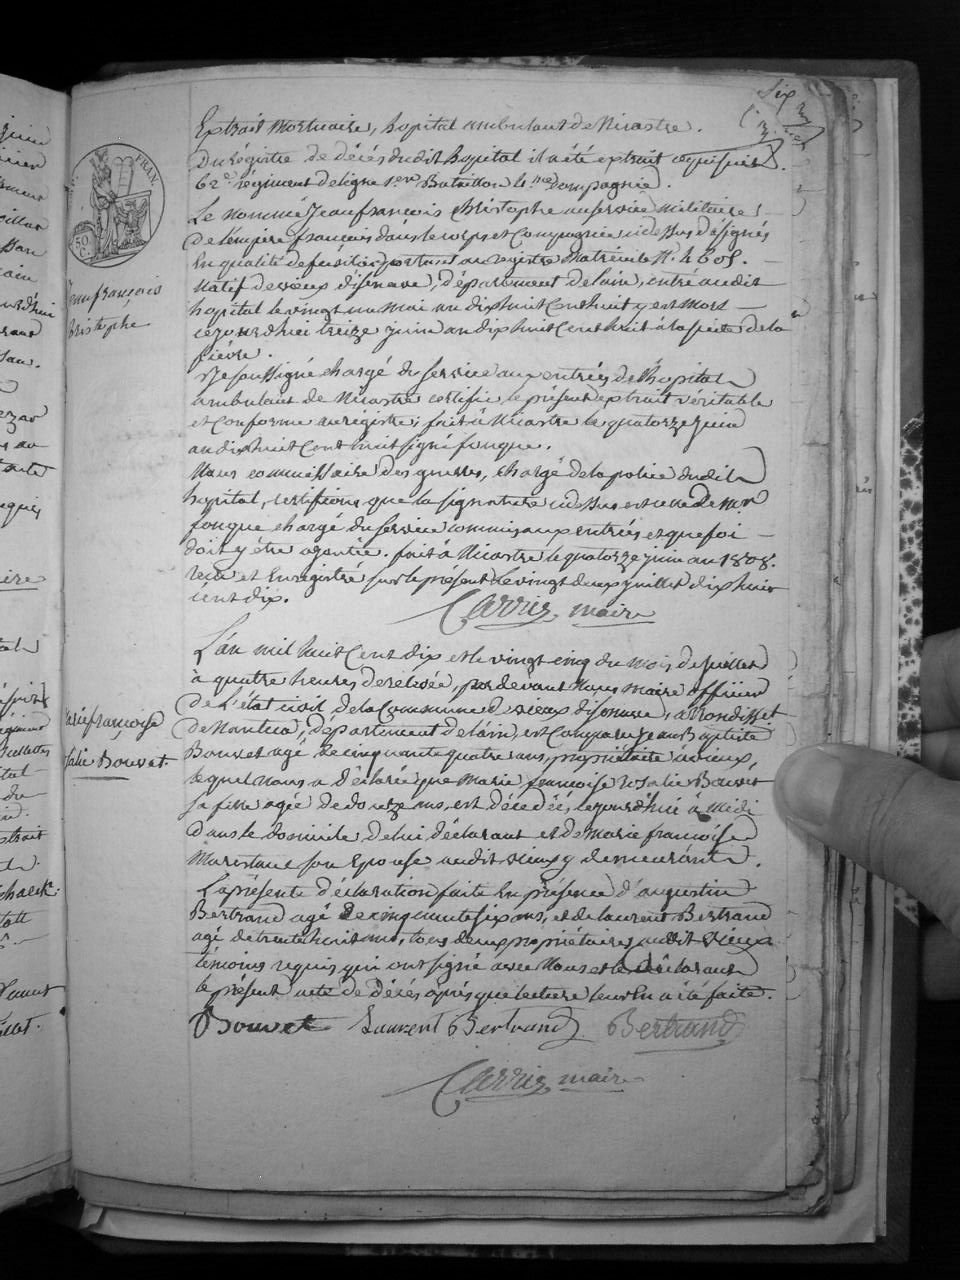 Six
Extrait Mortuaire, hopital ambulant de Nicastre.
Du régistre de décés dudit hopital il a été extrait ce qui suit
62e régiment de ligne 1er Bataillon 4me Compagnie.
Le nommé Jean françois Christophe au service militaire
de l'empire français dans le corps et Compagnie ci dessus designés
en qualité de fusilier portant au registre Matricule N° 4605.
natif de vieux d'isenave, département de l'ain, entré au dit
hopital le vingt un mai an dix huit Cent huit y est mort
ce jourd'hui treize juin an dix huit Cent huit à la suite de la
fiévre.
Je soussigné chargé du service aux entrées de l'hopital
ambulant de Nicastre certifie le présent extrait veritable
et conforme au régistre, fait à Nicastre le quatorze juin
an dix huit Cent huit signé fouque.
Nous commissaire des guerres, chargé de la police du dit
hopital, certifions que la signature ci dessus est celle de mr
fouque chargé du service commis aux entrées et que foi
doit y être ajoutée. fait à Nicastre le quatorze juin an 1808.
recu et Enregistré sur le présent le vingt deux juillet dix huit
cent dix.
Carrier maire
Jean françois
Christophe
L'an mil huit Cent dix et le vingt cinq du mois de juillet
à quatre heures de relevée, par devant Nous maire officier
De L'état civil de la Commune de vieux d'isenave, arrondisst
de Nantua, département de l'ain, est Comparu Jean Baptiste
Bouvet agé de cinquante quatre ans, propriétaire à vieux,
lequel nous a déclaré que Marie françoise rosalie Bouvet
sa fille agée de douze ans, est décedée, ce jourd'hui à Midi
Dans le domicile de lui déclarant et de Marie françoise
son Epouse audit vieux y demeurant.
La présente déclaration faite En présence d'augustin
Bertrand agé de cinquante six ans, et de laurent Bertrand
agé de trente huit ans, tous deux propriétaires audit vieux
témoins requis qui ont signé avec Nous et le déclarant
le présent acte de décés après que lecture leur En a été faite.
Marie françoise
Bouvet
Bouvet Laurent Bertrand Bertrand
Carrier maire